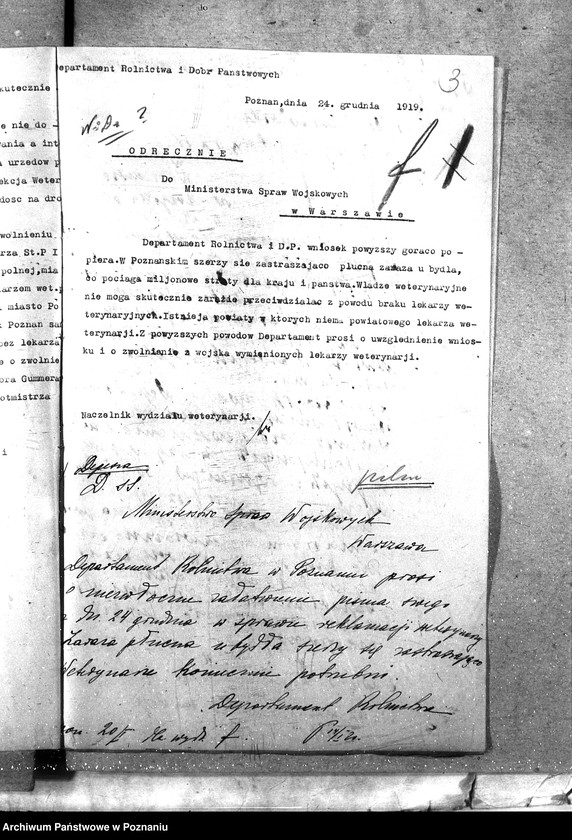 kutecznie
e nie do -
ania a int
urzedow p
ekcja Weter
dosc na dro
zwolnieniu
rza St.P I
polnej,mia
arzem wet.p
miasto Po
Poznan sa
bez lekarza
e o zwolnie
ora Gummera
otmistrza
i
epartament Rolnictwa i Dobr Panstwowych
3
Poznan,dnia 24. grudnia 1919.
ODRECZNIE
Do
Ministerstwa Spraw Wojskowych
w Warszawie
Departament Rolnictwa i D.P. wniosek powyzszy goraco po -
piera.W Poznanskim szerzy sie zastraszajaco plucna zaraza u bydla,
co pociaga miljonowe straty dla kraju i panstwa.Wladze weterynaryjne
nie moga skutecznie zarazie przeciwdzialac z powodu braku lekarzy we-
terynaryjnych.Istnieja powiaty w ktorych niema powiatowego lekarza we-
terynarji.Z powyzszych powodow Departament prosi o uwzglednienie wnios-
ku i o zwolnianie z wojska wymienionych lekarzy weterynarji.
Naczelnik wydzialu weterynarji.
Depesza
D. SS.
pilne
Ministerstwo Spraw Wojskowych
Warszawa
Departament Rolnictwa w Poznaniu prosi
o niezwłoczne załatwienie pisma swego
z dn. 24 grudnia w sprawie reklamacji
Zaraza płucna u bydła szerzy się zastraszająco
koniecznie potrzebni.
Departament Rolnictwa
Archiwum Państwowe w Poznaniu